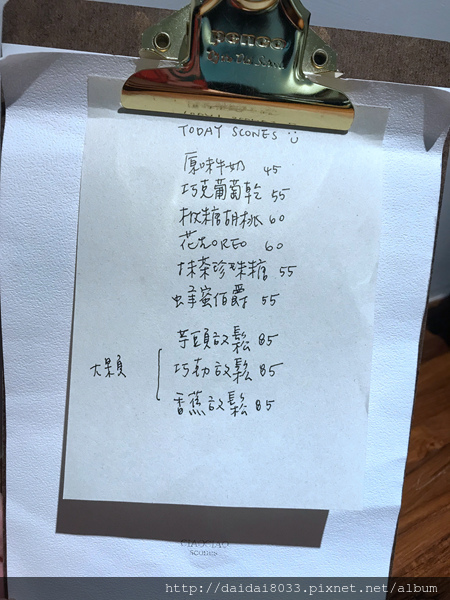 penco
TODAY SCONES
原味牛奶 45
巧克葡萄乾 55
楓糖胡桃 60
花生OREO 60
抹茶珍珠糖 55
蜂蜜伯爵 55
芋頭放鬆 85
大顆 巧勒放鬆 85
香蕉放鬆 85
SCONES
http://daidai8033.pixnet.net/album